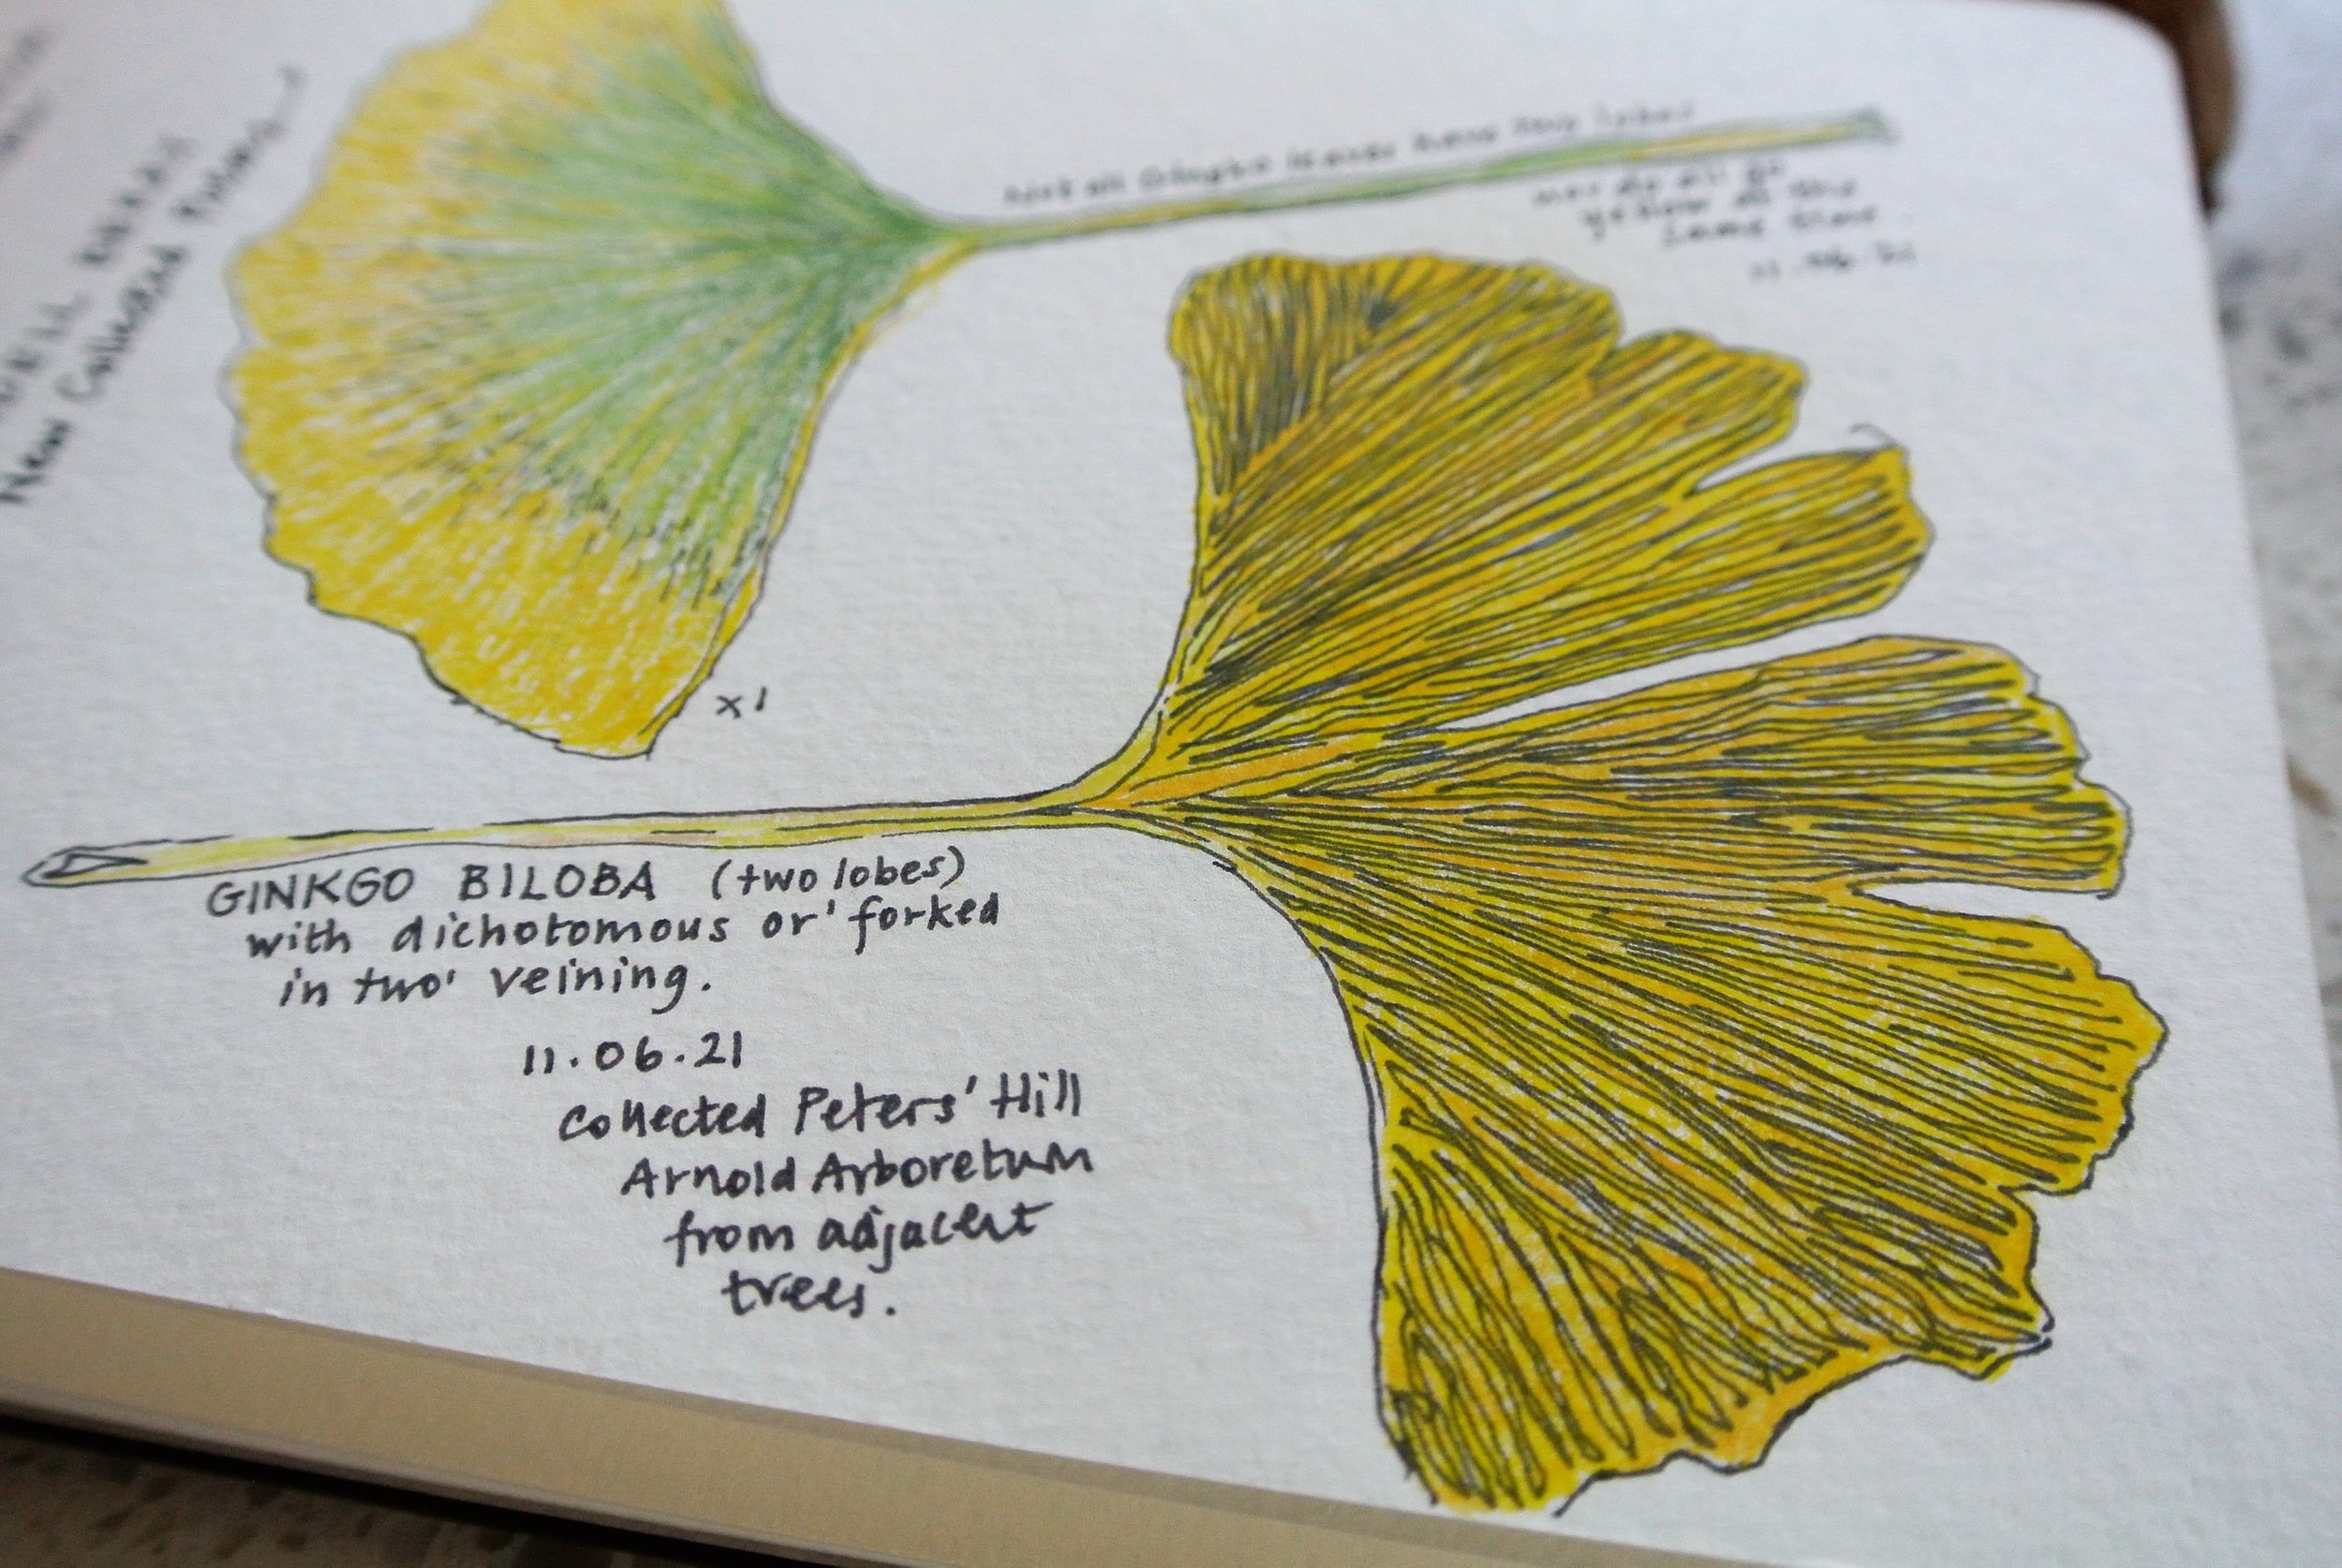 New Coloured Pencils
Not all Ginkgo leaves have two lobes
nor do all go
yellow at the
same time.
11.06.21
x1
GINKGO BILOBA (two lobes)
with dichotomous or 'forked
in two' veining.
11.06.21
Collected Peters' Hill
Arnold Arboretum
from adjacent
trees.